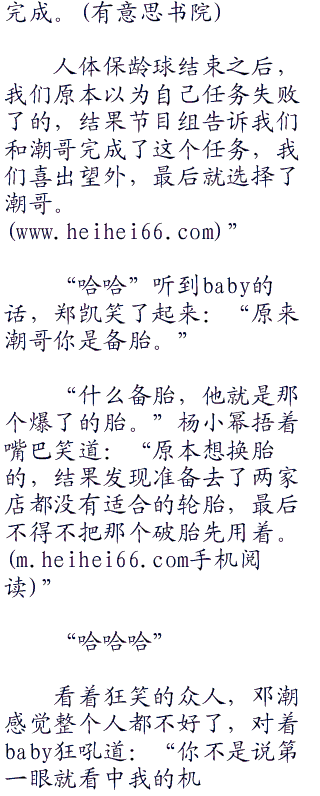 完成。(有意思书院)
人体保龄球结束之后，
我们原本以为自己任务失败
了的，结果节目组告诉我们
和潮哥完成了这个任务，我
们喜出望外，最后就选择了
潮哥。
(www.heihei66.com)”
“哈哈”听到baby的
话，郑凯笑了起来：“原来
潮哥你是备胎。”
“什么备胎，他就是那
个爆了的胎。”杨小幂捂着
嘴巴笑道：“原本想换胎
的，结果发现准备去了两家
店都没有适合的轮胎，最后
不得不把那个破胎先用着。
(m.heihei66.com手机阅
读)”
“哈哈哈”
看着狂笑的众人，邓潮
感觉整个人都不好了，对着
baby狂吼道：“你不是说第
一眼就看中我的机